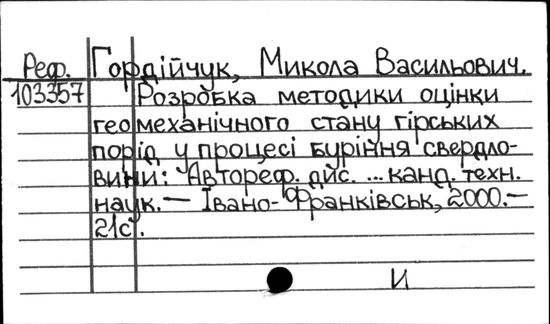 Реф. Гордійчук, Микола Васильович.
103357 Розробка методики оцінки
геомеханічного стану гірських
порід у процесі буріння свердло-
вини: Автореф. дис. ... канд. техн.
наук. — Івано-Франківськ, 2000. —
21с.
И